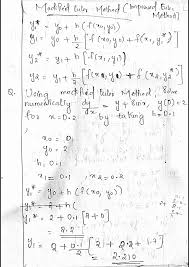 Modified Euler Method (Improved Euler Method)
y₁* = y₀ + h [f(x₀, y₀)]
y₁ = y₀ + h/2 [f(x₀, y₀) + f(x₁, y₁*)]
y₂* = y₁ + h [f(x₁, y₁)]
y₂ = y₁ + h/2 [f(x₁, y₁) + f(x₂, y₂*)]
Q. Using modified Euler Method, solve
numerically dy/dx = y + sin x, y(0) = 2
for x = 0.2 by taking h = 0.1
x₀ = 0,
y₀ = 2
h = 0.1
x₁ = 0.1 x₂ = 0.2
y₁* = y₀ + h (f(x₀, y₀))
y₁* = 2 + h (
y₁* = 2 + 0.1 [2 + 0]
= 2.2
y₁ = 2 + 0.1/2 [2 +
= 2.210